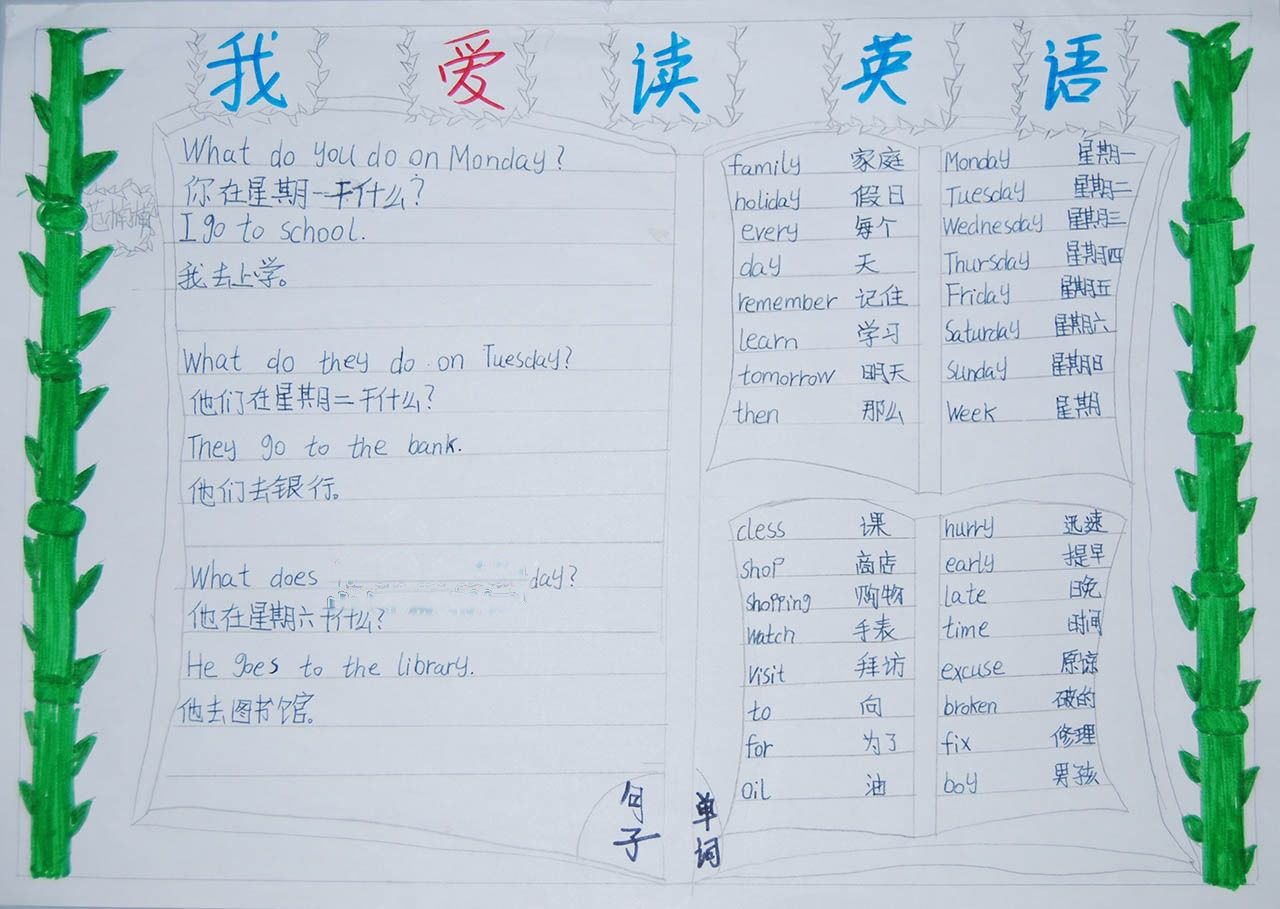 我爱读英语
What do you do on Monday?
你在星期一干什么?
I go to school.
我去上学。
What do they do on Tuesday?
他们在星期二干什么?
They go to the bank.
他们去银行。
What does day?
他在星期六干什么?
He goes to the library.
他去图书馆。
句子
family 家庭
holiday 假日
every 每个
day 天
remember 记住
learn 学习
tomorrow 明天
then 那么
Monday 星期一
Tuesday 星期二
Wednesday 星期三
Thursday 星期四
Friday 星期五
Saturday 星期六
Sunday 星期日
Week 星期
cless 课
shop 商店
shopping 购物
watch 手表
visit 拜访
to 向
for 为了
oil 油
hurry 迅速
early 提早
late 晚
time 时间
excuse 原谅
broken 破的
fix 修理
boy 男孩
单词